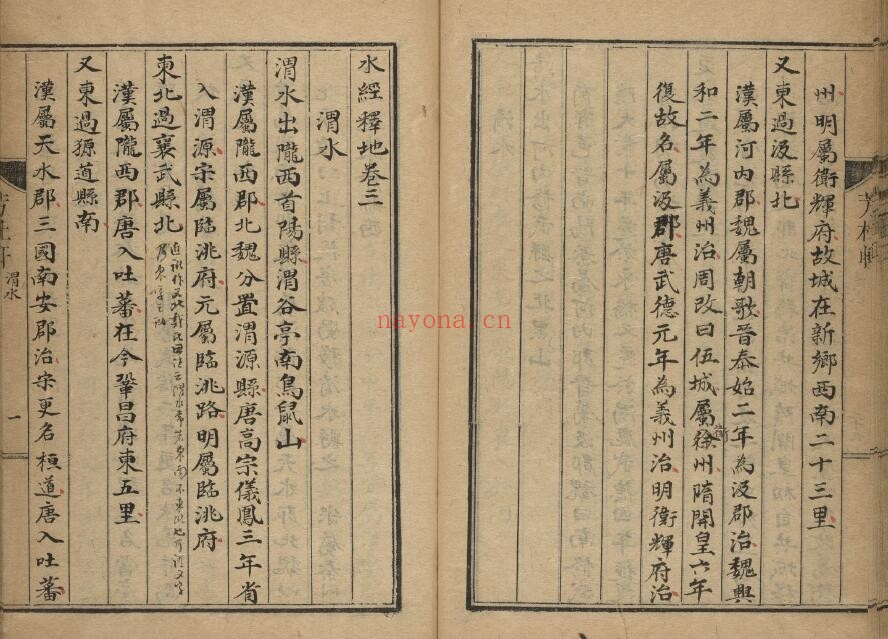 州明屬衛輝府故城在新鄉西南二十三里
又東過汲縣北
漢屬河内郡魏屬朝歌晉泰始二年為汲郡治魏興
和二年為義州治周改曰伍城屬徐州隋開皇六年
復故名屬汲郡唐武德元年為義州治明衛輝府治
水經釋地卷三
渭水
渭水出隴西首陽縣渭谷亭南鳥鼠山
漢屬隴西郡北魏分置渭源縣唐高宗儀鳳三年省
入渭源宋屬臨洮府元屬臨洮路明屬臨洮府
東北過襄武縣北
漢屬隴西郡唐入吐蕃在今鞏昌府東五里
又東過獂道縣南
漢屬天水郡三國南安郡治宋更名桓道唐入吐蕃
渭水
一
nayona.cn